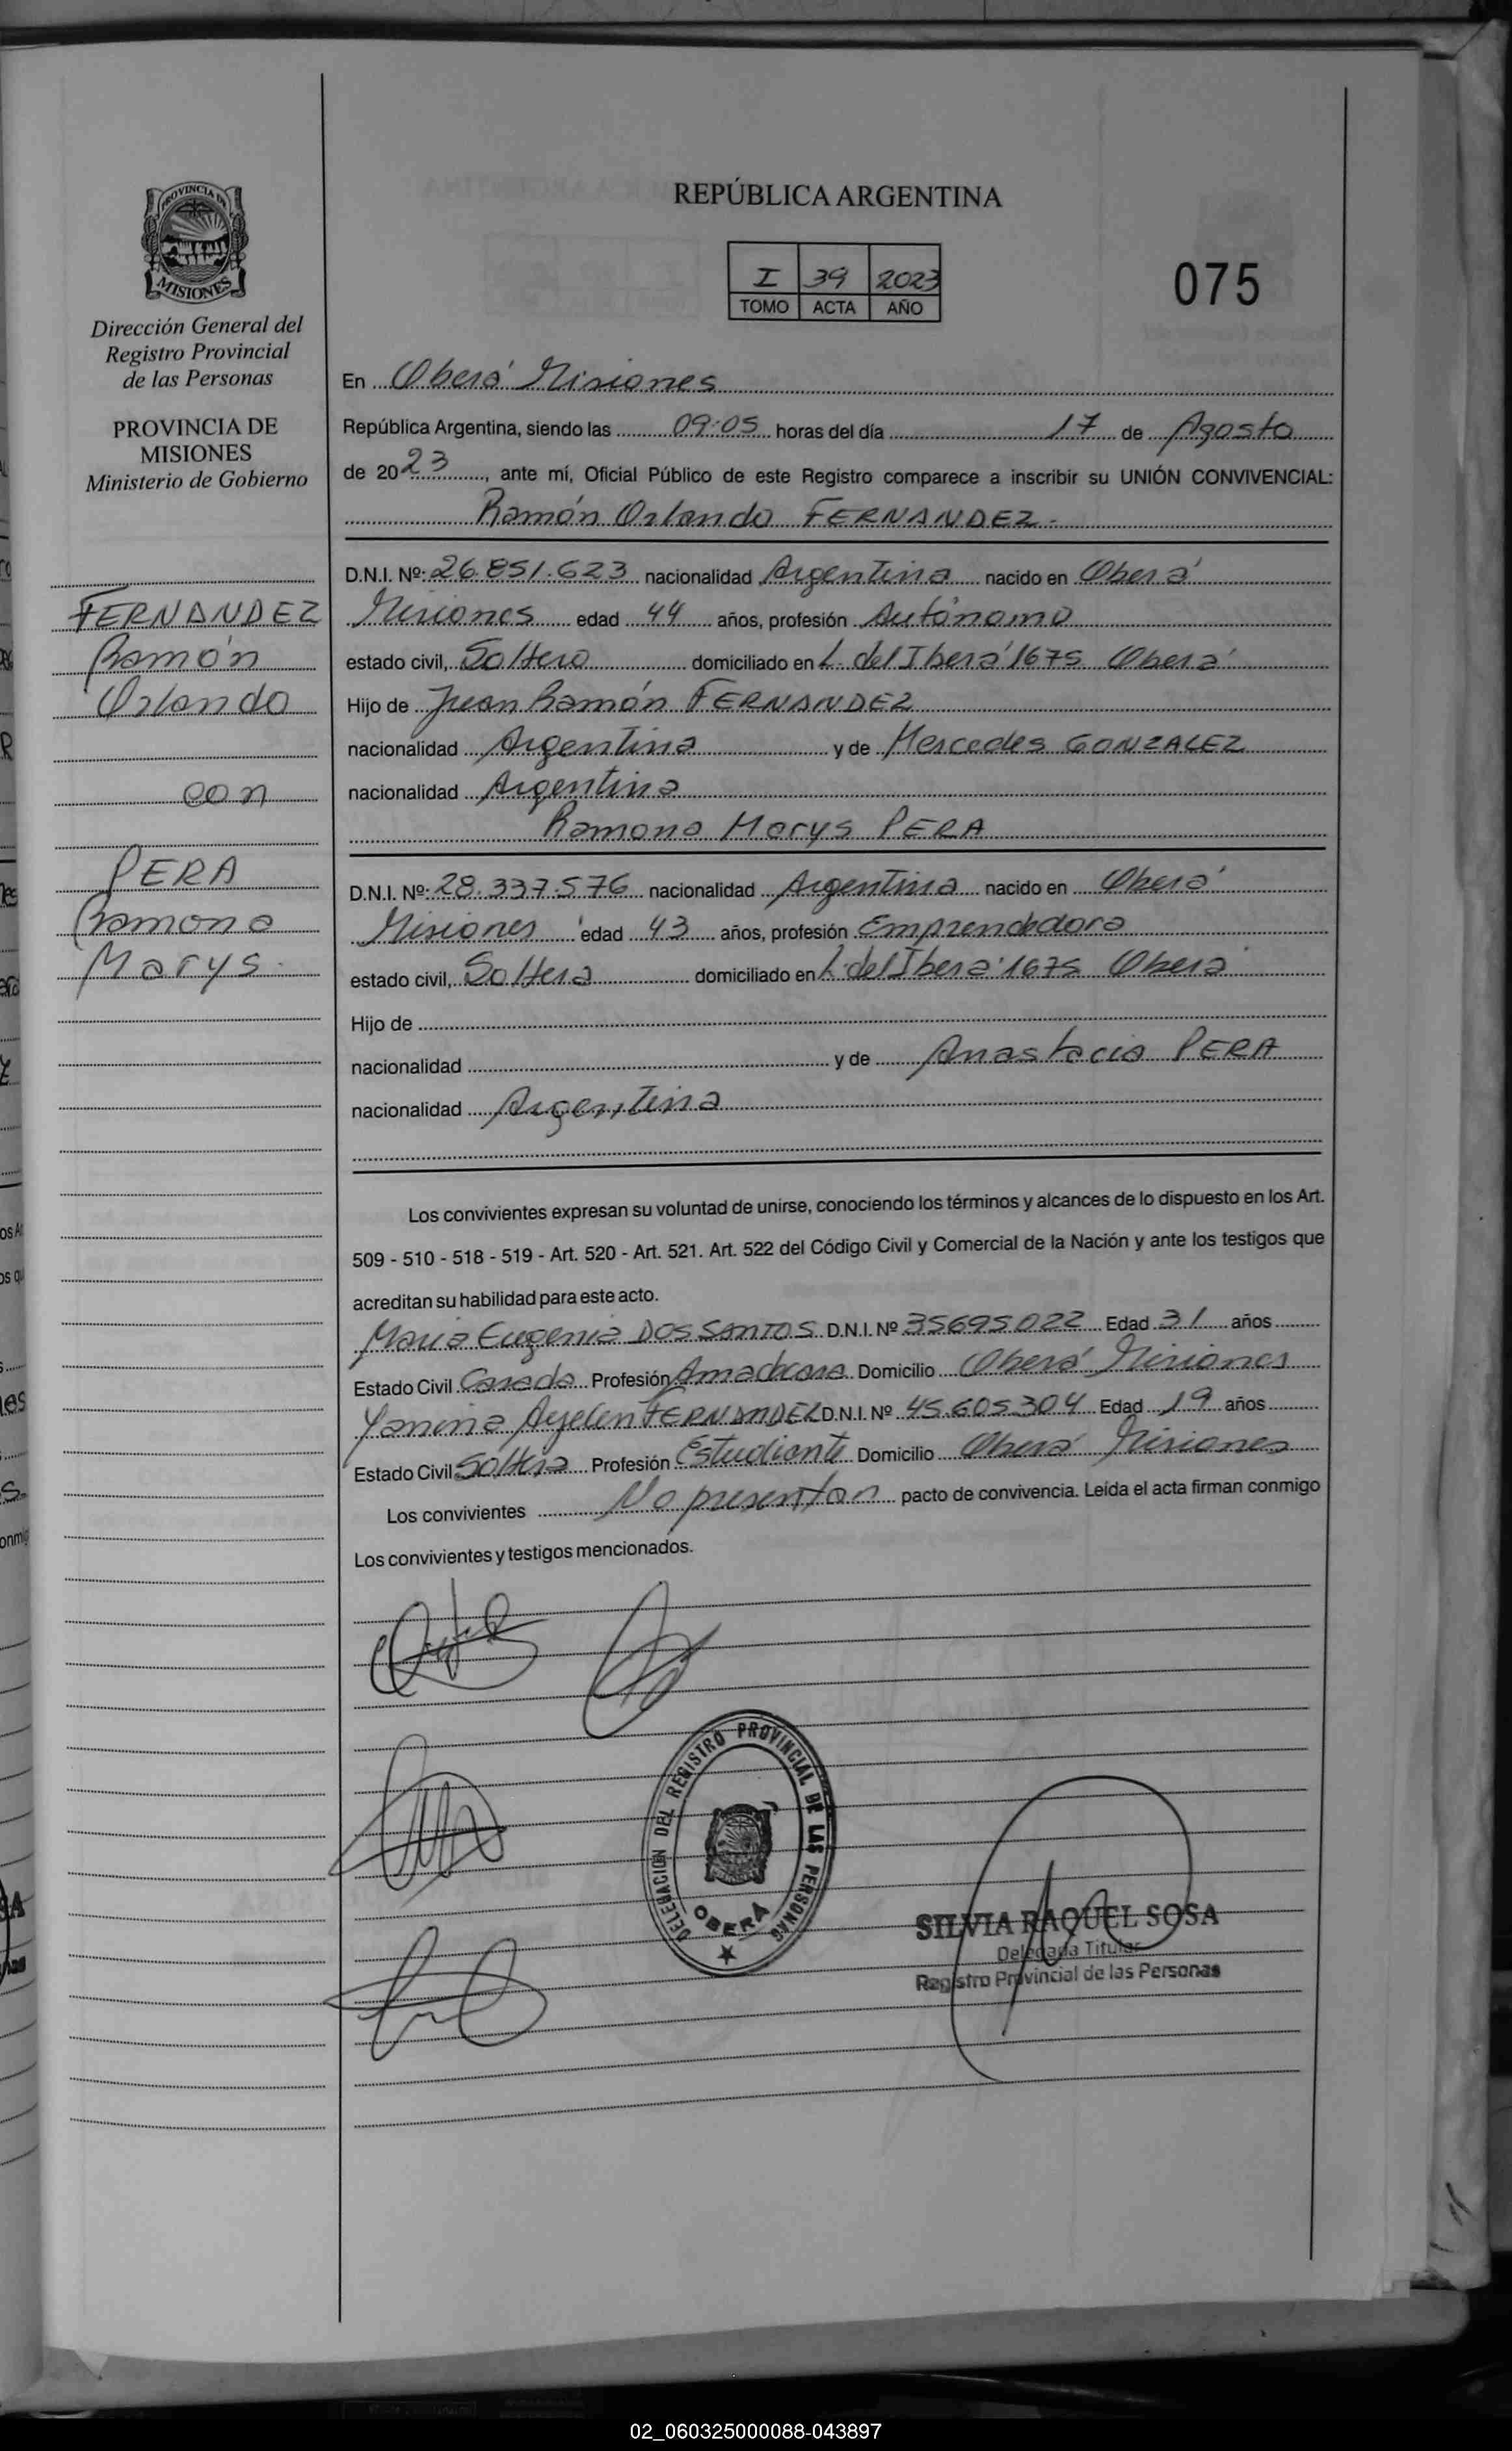 REPÚBLICA ARGENTINA
I 39 2023
TOMO ACTA AÑO
075
PROVINCIA DE
MISIONES
Dirección General del
Registro Provincial
de las Personas
PROVINCIA DE
MISIONES
Ministerio de Gobierno
FERNANDEZ
Ramón
Orlando
con
PERA
Ramona
Marys.
En Oberá Misiones
República Argentina, siendo las 09:05 horas del día 17 de Agosto
de 2023, ante mí, Oficial Público de este Registro comparece a inscribir su UNIÓN CONVIVENCIAL:
Ramón Orlando FERNANDEZ.
D.N.I. Nº: 26.851.623 nacionalidad Argentina nacido en Oberá
Misiones edad 44 años, profesión Autónomo
estado civil, Soltero domiciliado en L. del Iberá 1675 Oberá
Hijo de Juan Ramón FERNANDEZ
nacionalidad Argentina y de Mercedes GONZALEZ
nacionalidad Argentina
Ramona Marys PERA
D.N.I. Nº: 28.337.576 nacionalidad Argentina nacido en Oberá
Misiones edad 43 años, profesión Emprendedora
estado civil, Soltera domiciliado en L. del Iberá 1675 Oberá
Hijo de
nacionalidad y de Anastacia PERA
nacionalidad Argentina
Los convivientes expresan su voluntad de unirse, conociendo los términos y alcances de lo dispuesto en los Art.
509 - 510 - 518 - 519 - Art. 520 - Art. 521. Art. 522 del Código Civil y Comercial de la Nación y ante los testigos que
acreditan su habilidad para este acto.
Maria Eugenia DOS SANTOS D.N.I. Nº 35695022 Edad 31 años
Estado Civil Casada Profesión Ama de casa Domicilio Oberá Misiones
Yanina Ayelen FERNANDEZ D.N.I. Nº 45.605.304 Edad 19 años
Estado Civil Soltera Profesión Estudiante Domicilio Oberá Misiones
Los convivientes No presentan pacto de convivencia. Leída el acta firman conmigo
Los convivientes y testigos mencionados.
DELEGACION DEL REGISTRO PROVINCIAL DE LAS PERSONAS
OBERA
SILVIA RAQUEL SOSA
Delegada Titular
Registro Provincial de las Personas
02_060325000088-043897